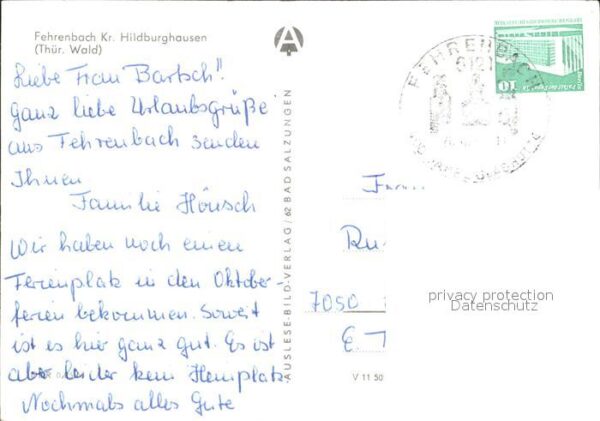 Fehrenbach Kr. Hildburghausen
(Thür. Wald)
Liebe Frau Bartsch!!
Ganz liebe Urlaubsgrüße
aus Fehrenbach senden
Ihnen
Familie Hönsch
Wir haben noch einen
Ferienplatz in den Oktober-
ferien bekommen. Soweit
ist es hier ganz gut. Es ist
aber leider kein Heimplatz
Nochmals alles Gute
AUSLESE-BILD-VERLAG / 62 BAD SALZUNGEN
V 11 50
FEHRENBACH
6121
10
7050
privacy protection
Datenschutz